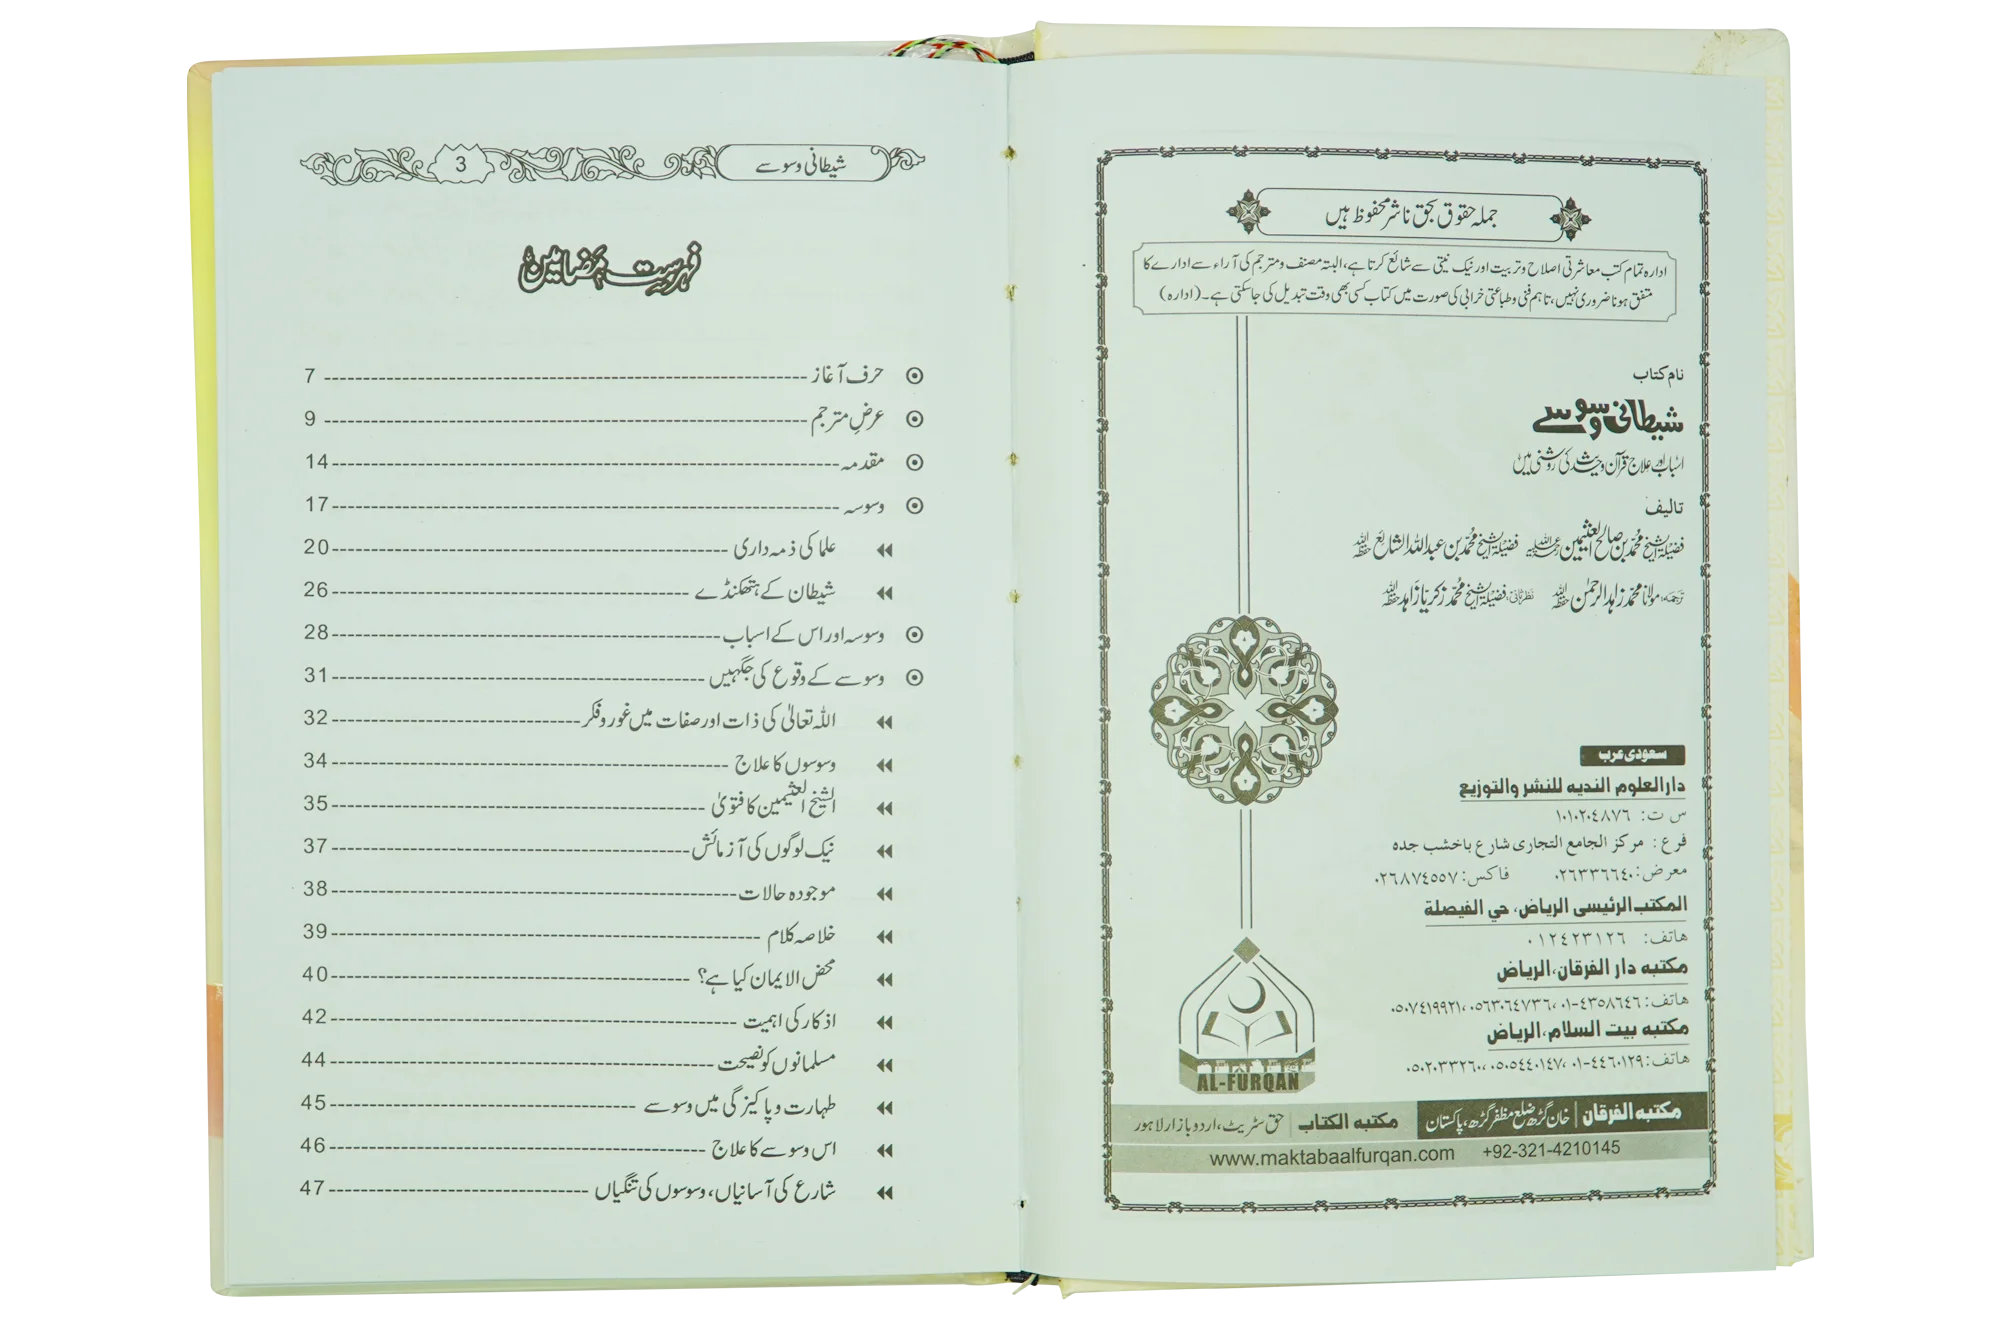 جملہ حقوق بحق ناشر محفوظ ہیں
ادارہ تمام کتب معاشرتی اصلاح و تربیت اور نیک نیتی سے شائع کرتا ہے، البتہ مصنف و مترجم کی آراء سے ادارے کا
متفق ہونا ضروری نہیں، تاہم فنی و طباعتی خرابی کی صورت میں کتاب کسی بھی وقت تبدیل کی جاسکتی ہے۔ (ادارہ)
نام کتاب
شیطانی وسوسے
اسباب اور علاج قرآن و حدیث کی روشنی میں
تالیف
فضیلۃ الشیخ محمد بن صالح العثیمین رحمۃ اللہ علیہ فضیلۃ الشیخ محمد بن عبداللہ الشائع حفظہ اللہ
ترجمہ: مولانا محمد زاہد الرحمٰن حفظہ اللہ نظر ثانی: فضیلۃ الشیخ محمد زکریا زاہد حفظہ اللہ
سعودی عرب
دار العلوم الندیه للنشر والتوزیع
س ت: ١٠١٠٢٠٤٨٧٦
فرع: مرکز الجامع التجاری شارع باخشب جده
معرض: ٠٢٦٣٣٦٦٤٠ فاکس: ٠٢٦٨٧٤٥٥٧
المکتب الرئیسی الریاض، حي الفیصلة
هاتف: ٠١٢٤٢٣١٢٦
مکتبه دار الفرقان، الریاض
هاتف: ٠١-٤٣٥٨٦٤٦، ٠٥٦٣٠٦٤٧٣٦، ٠٥٠٧٤١٩٩٢١
مکتبه بیت السلام، الریاض
هاتف: ٠١-٤٤٦٠١٢٩، ٠٥٠٥٤٤٠١٤٧، ٠٥٠٢٠٣٣٢٦٠
AL-FURQAN
مکتبه الفرقان | خان گڑھ ضلع مظفر گڑھ، پاکستان مکتبه الکتاب | حق سٹریٹ، اردو بازار لاہور
www.maktabaalfurqan.com +92-321-4210145
شیطانی وسوسے 3
فہرست مضامین
حرف آغاز 7
عرضِ مترجم 9
مقدمہ 14
وسوسہ 17
علما کی ذمہ داری 20
شیطان کے ہتھکنڈے 26
وسوسہ اور اس کے اسباب 28
وسوسے کے وقوع کی جگہیں 31
اللہ تعالیٰ کی ذات اور صفات میں غور و فکر 32
وسوسوں کا علاج 34
الشیخ العثیمین کا فتویٰ 35
نیک لوگوں کی آزمائش 37
موجودہ حالات 38
خلاصہ کلام 39
محض الایمان کیا ہے؟ 40
اذکار کی اہمیت 42
مسلمانوں کو نصیحت 44
طہارت و پاکیزگی میں وسوسے 45
اس وسوسے کا علاج 46
شارع کی آسانیاں، وسوسوں کی تنگیاں 47